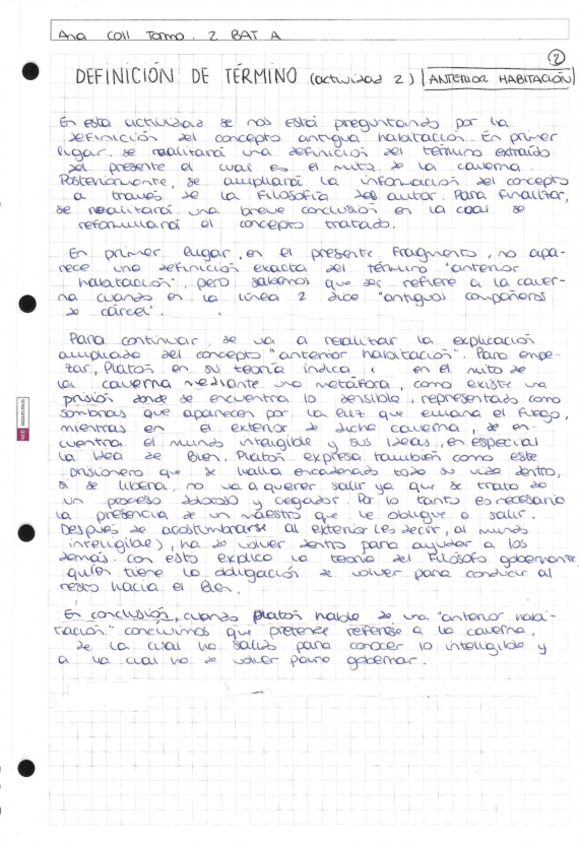 Ana Coll Tormo. 2 BAT A
2
DEFINICIÓN DE TÉRMINO (actividad 2) ANTERIOR HABITACIÓN
En esta actividad se nos está preguntando por la
definición del concepto antigua habitación. En primer
lugar, se realitará una definición del término extraído
del presente el cual es el mito de la caverna.
Posteriormente, se ampliará la información del concepto
a través de la filosofía del autor. Para finalitzar,
se realitará una breve conclusión en la cual se
reformulará el concepto tratado.
En primer lugar, en el presente fragmento, no apa-
rece una definición exacta del término "anterior
habitación", pero sabemos que se refiere a la caver-
na cuando en la línea 2 dice "antiguos compañeros
de cárcel".
Para continuar, se va a realitar la explicación
ampliada del concepto "anterior habitación". Para empe-
zar, Platón en su teoría indica, en el mito de
la caverna mediante una metáfora, como existe una
prisión donde se encuentra lo sensible, representado como
sombras que aparecen por la luz que emana el fuego,
mientras en el exterior de dicha caverna, se en-
cuentra el mundo inteligible y sus Ideas, en especial
la idea de Bien. Platón expresa también como este
prisionero que se halla encadenado toda su vida dentro,
si se libera, no va a querer salir ya que se trata de
un proceso doloroso y cegador. Por lo tanto es necesario
la presencia de un maestro que le obligue a salir.
Después de acostumbrarse al exterior (es decir, al mundo
inteligible), ha de volver dentro para ayudar a los
demás. Con esto explica la teoría del filósofo gobernante
quien tiene la obligación de volver para conducir al
resto hacia el Bien.
En conclusión, cuando Platón habla de una "anterior habi-
tación" concluimos que pretende referirse a la caverna,
de la cual ha salido para conocer lo inteligible y
a la cual ha de volver para gobernar.